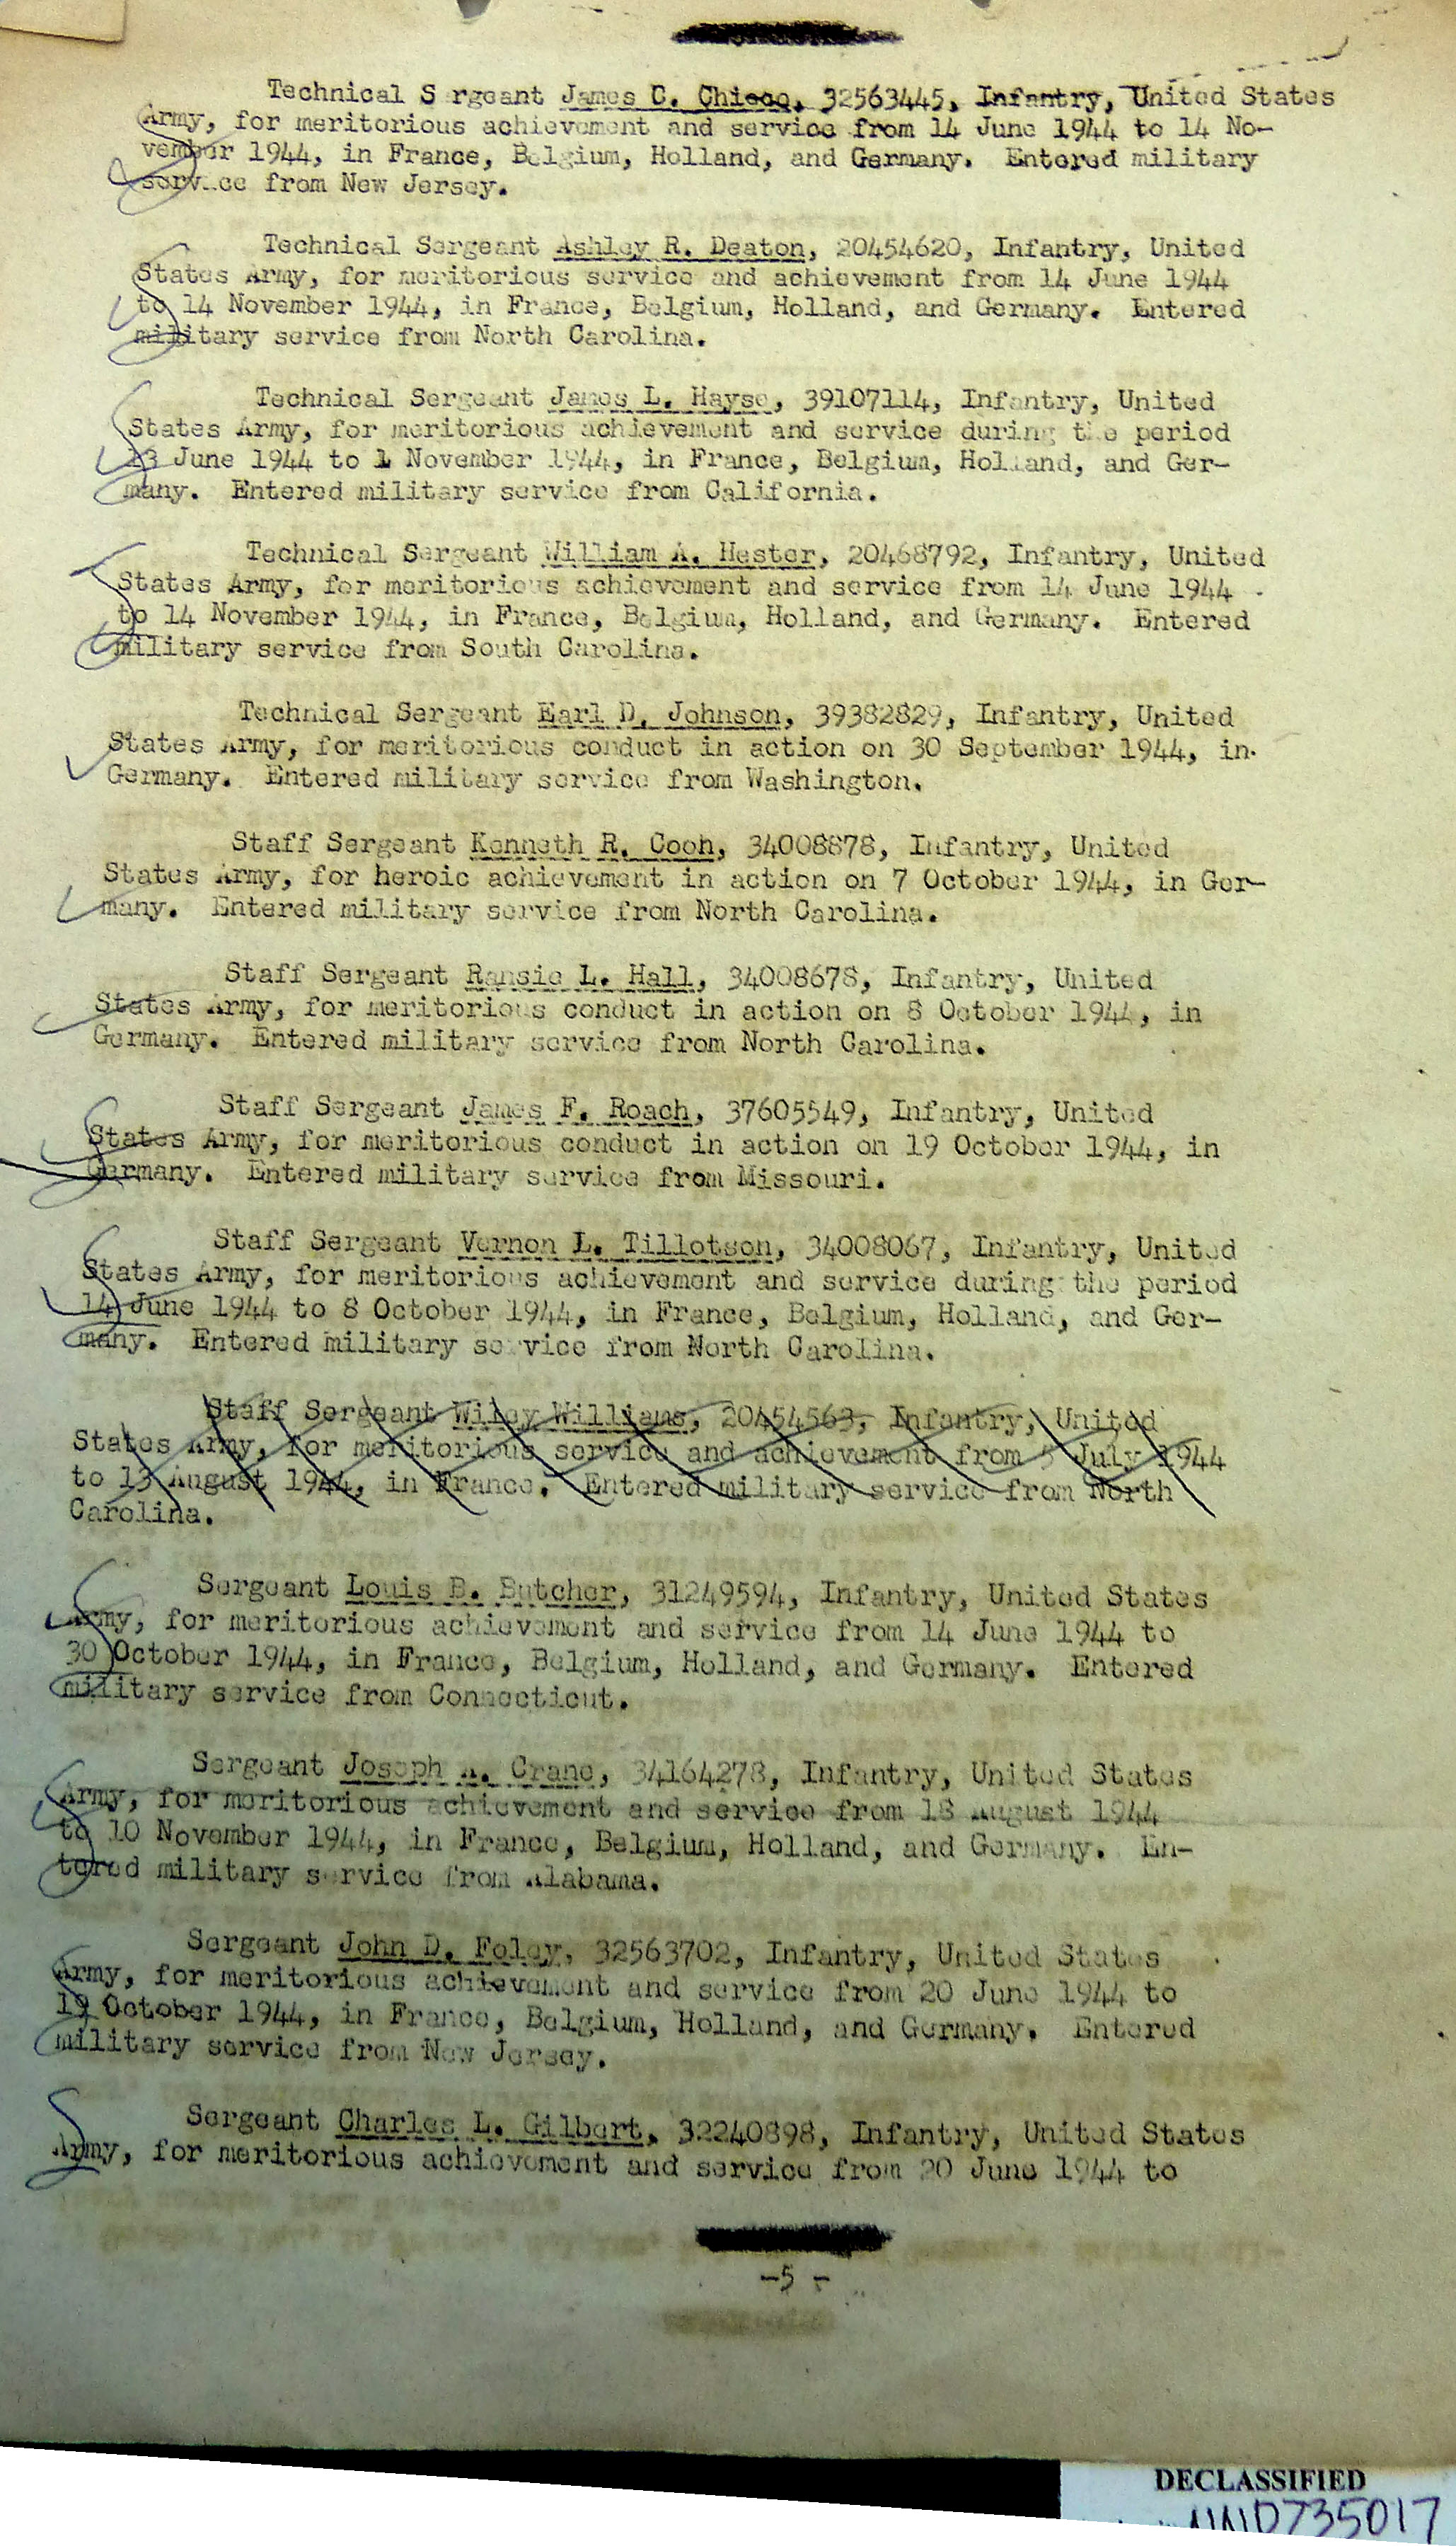 Technical S rgeant James C. Chiecq, 32563445, Infantry, United States
Army, for meritorious achievement and service from 14 June 1944 to 14 No-
vember 1944, in France, Belgium, Holland, and Germany. Entered military
service from New Jersey.
Technical Sergeant Ashley R. Deaton, 20454620, Infantry, United
States Army, for meritorious service and achievement from 14 June 1944
to 14 November 1944, in France, Belgium, Holland, and Germany. Entered
military service from North Carolina.
Technical Sergeant James L. Hayse, 39107114, Infantry, United
States Army, for meritorious achievement and service during the period
13 June 1944 to 1 November 1944, in France, Belgium, Holland, and Ger-
many. Entered military service from California.
Technical Sergeant William A. Hester, 20468792, Infantry, United
States Army, for meritorious achievement and service from 14 June 1944
to 14 November 1944, in France, Belgium, Holland, and Germany. Entered
military service from South Carolina.
Technical Sergeant Earl D. Johnson, 39382829, Infantry, United
States Army, for meritorious conduct in action on 30 September 1944, in
Germany. Entered military service from Washington.
Staff Sergeant Kenneth R. Cooh, 34008878, Infantry, United
States Army, for heroic achievement in action on 7 October 1944, in Ger-
many. Entered military service from North Carolina.
Staff Sergeant Ransie L. Hall, 34008678, Infantry, United
States Army, for meritorious conduct in action on 8 October 1944, in
Germany. Entered military service from North Carolina.
Staff Sergeant James F. Roach, 37605549, Infantry, United
States Army, for meritorious conduct in action on 19 October 1944, in
Germany. Entered military service from Missouri.
Staff Sergeant Vernon L. Tillotson, 34008067, Infantry, United
States Army, for meritorious achievement and service during the period
14 June 1944 to 8 October 1944, in France, Belgium, Holland, and Ger-
many. Entered military service from North Carolina.
Staff Sergeant Wiley Williams, 20454563, Infantry, United
States Army, for meritorious service and achievement from July 1944
to 13 August 1944, in France. Entered military service from North
Carolina.
Sergeant Louis B. Butcher, 31249594, Infantry, United States
Army, for meritorious achievement and service from 14 June 1944 to
30 October 1944, in France, Belgium, Holland, and Germany. Entered
military service from Connecticut.
Sergeant Joseph A. Crane, 34164278, Infantry, United States
Army, for meritorious achievement and service from 18 August 1944
to 10 November 1944, in France, Belgium, Holland, and Germany. En-
tered military service from Alabama.
Sergeant John D. Foley, 32563702, Infantry, United States
Army, for meritorious achievement and service from 20 June 1944 to
19 October 1944, in France, Belgium, Holland, and Germany. Entered
military service from New Jersey.
Sergeant Charles L. Gilbert, 32240898, Infantry, United States
Army, for meritorious achievement and service from 20 June 1944 to
-5 -
DECLASSIFIED
NND735017